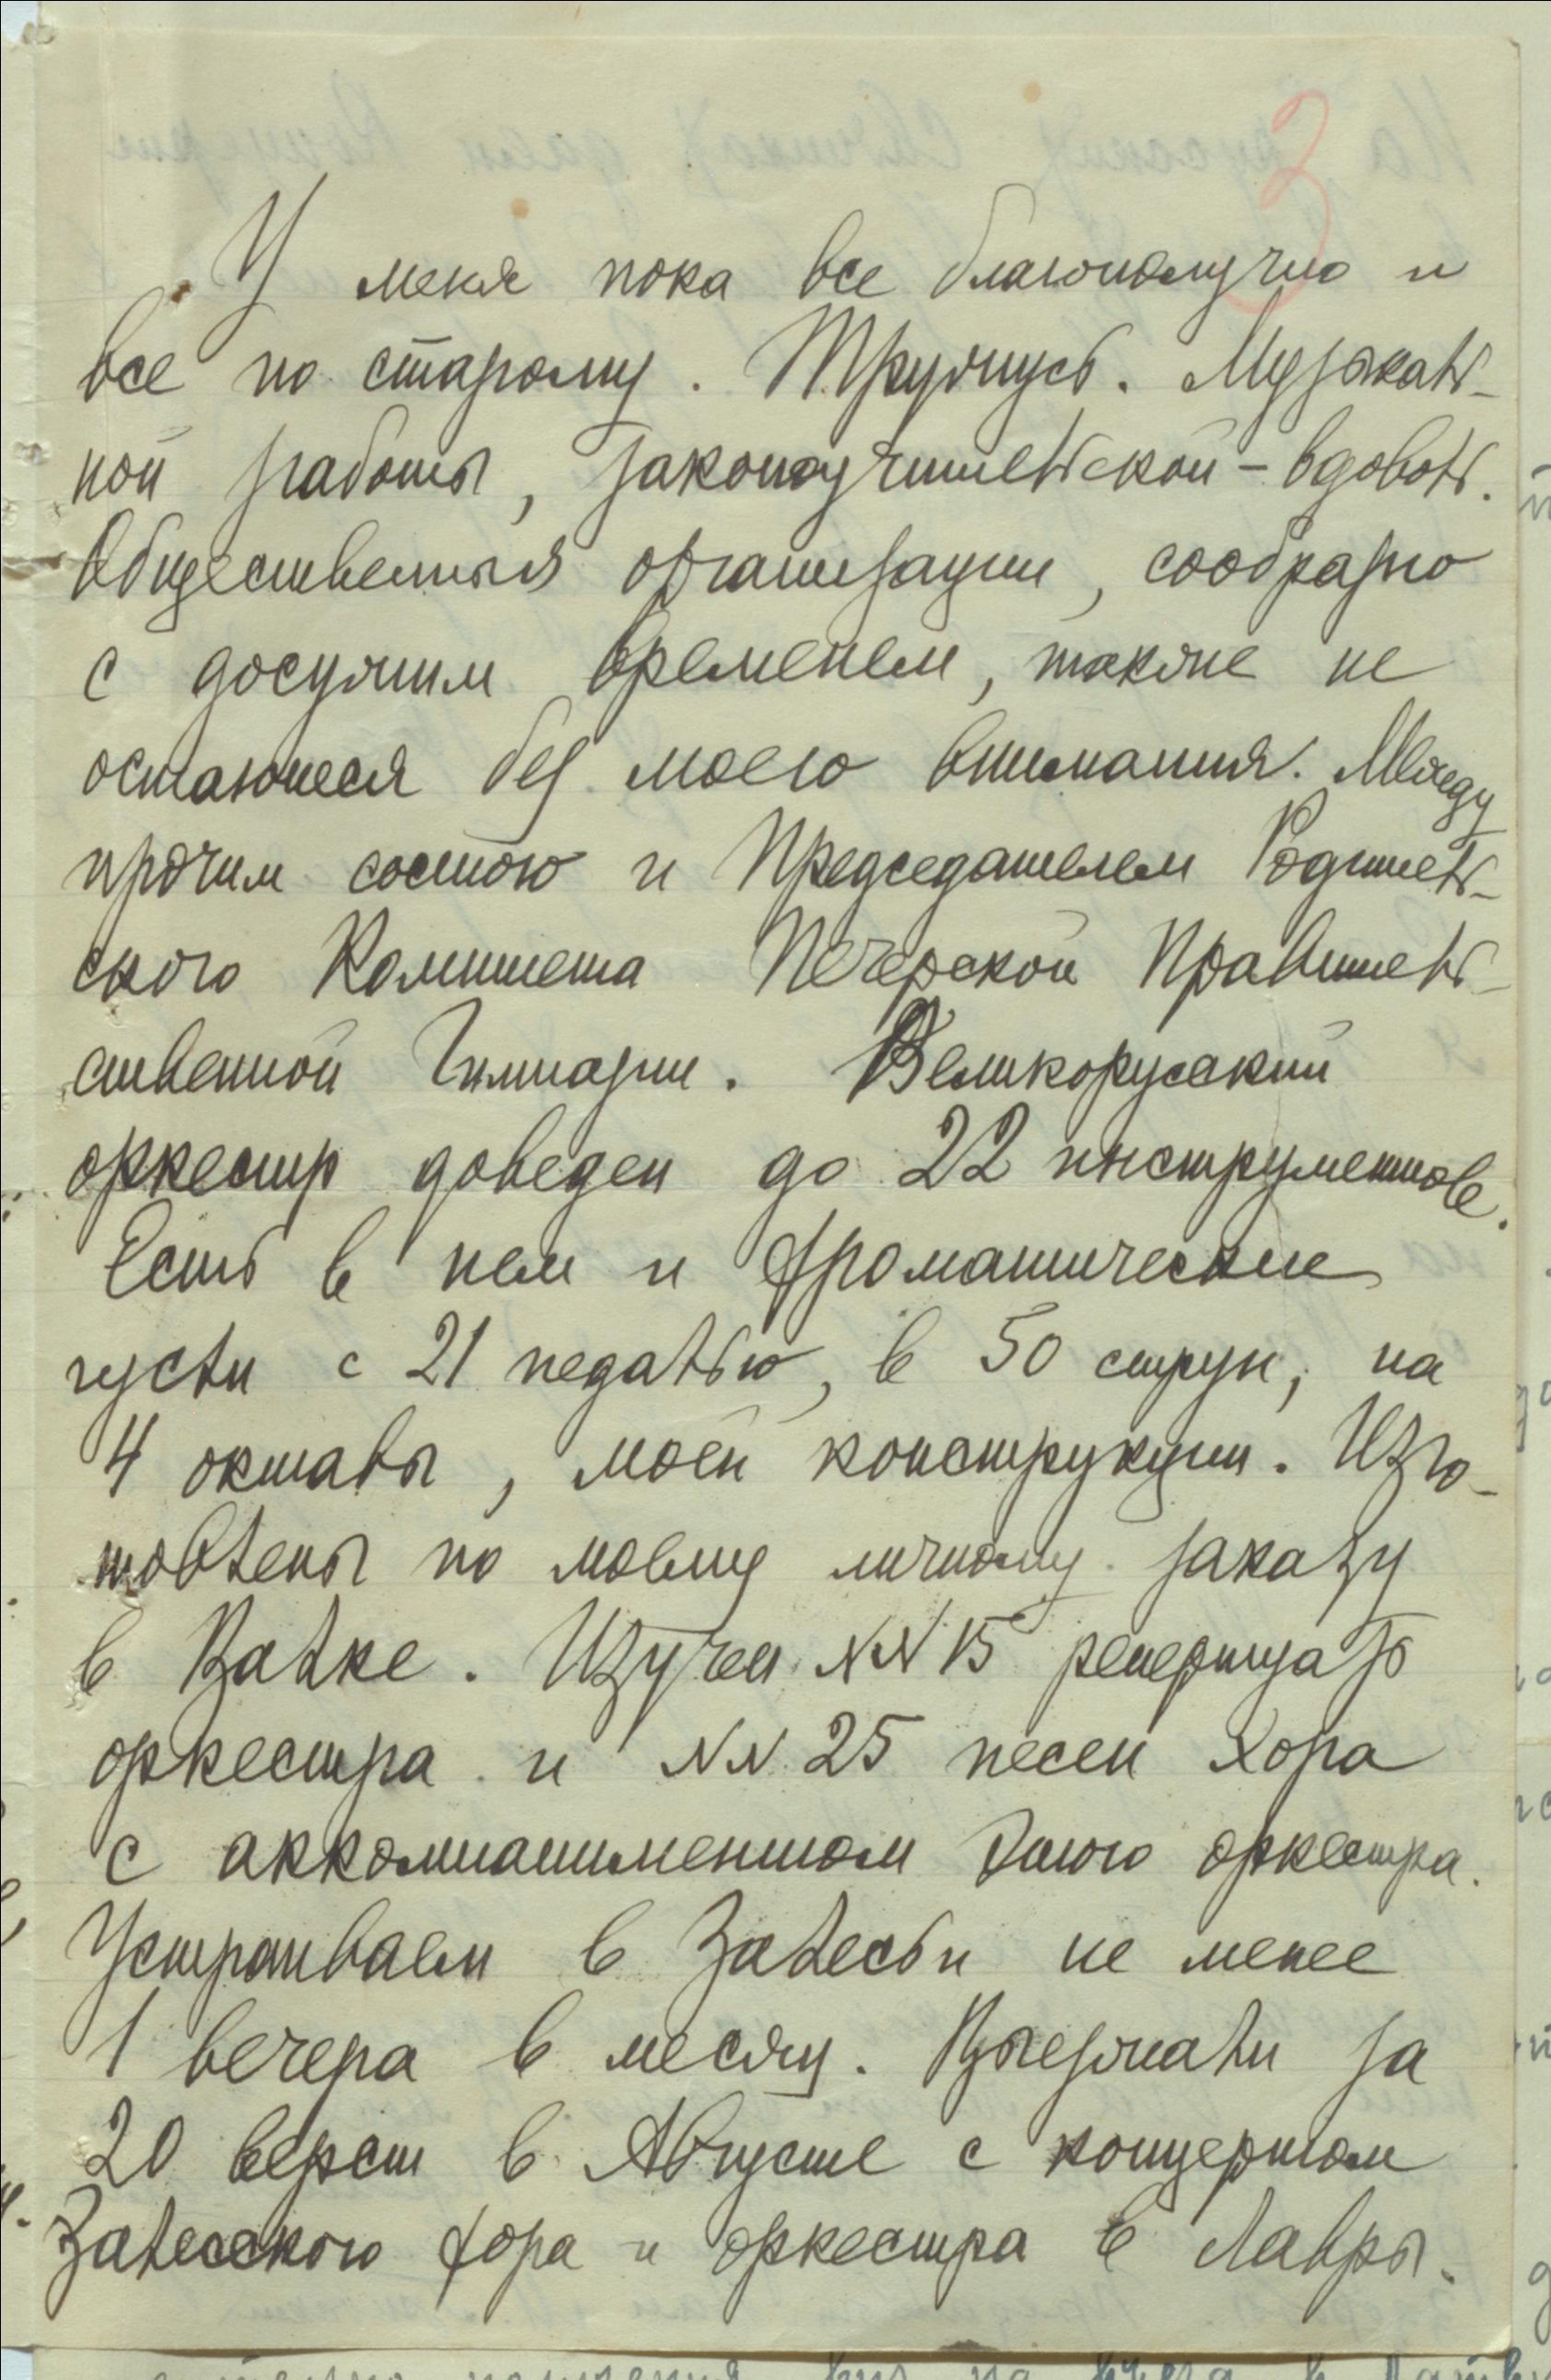 3
У меня пока все благополучно и
все по старому. Тружусь. Музыкаль-
ной работы, законоучительской – вдоволь.
Общественныя организации, сообразно
с досужим временем, также не
остаются без моего внимания. Между
прочим состою и Председателем Родитель-
ского Комитета Печерской Правитель-
ственной Гимназии. Великорусский
оркестр доведен до 22 инструментов.
Есть в нем и хроматические
гусли с 21 педалью, в 50 струн, на
4 октавы, моей конструкции. Изго-
товлены по моему личному заказу
в Валке. Изучен №№ 15 репертуар
оркестра и №№ 25 песен хора
с аккомпаниментом этого оркестра.
Устраиваем в Залесьи не менее
1 вечера в месяц. Выезжали за
20 верст в Августе с концертом
Залесского хора и оркестра в Лавры.